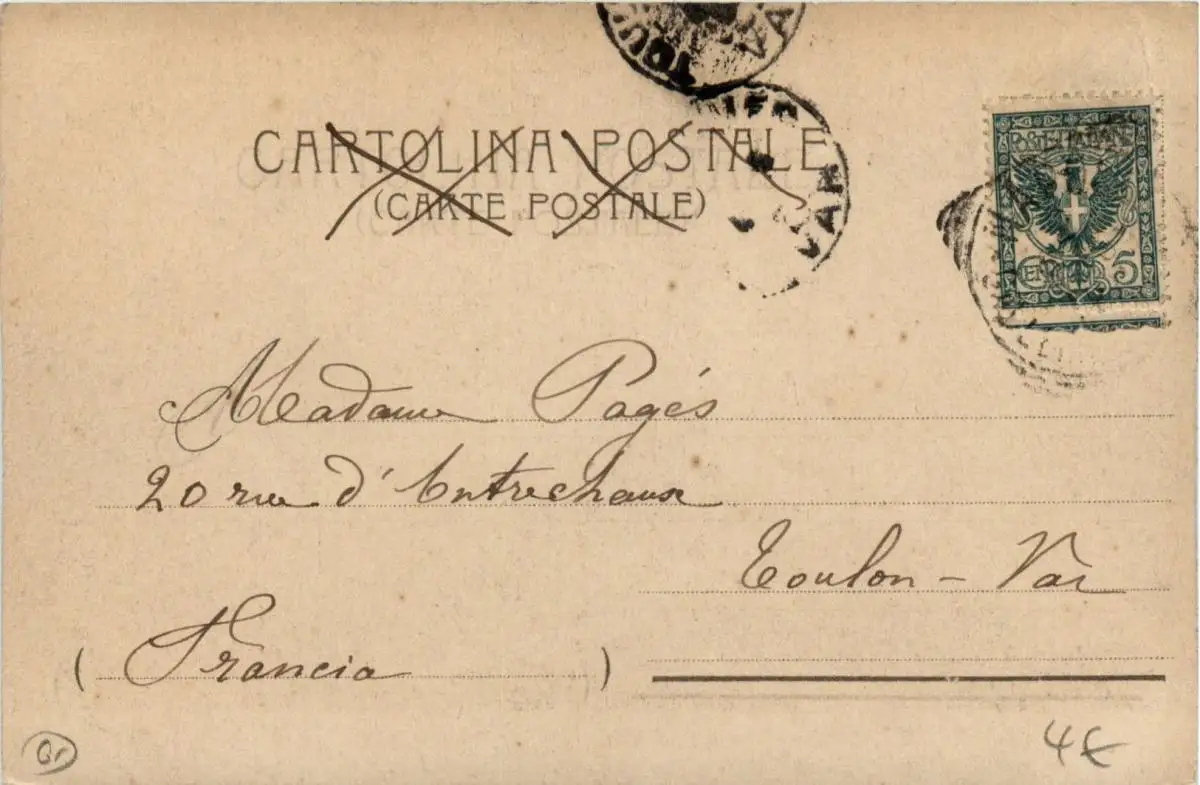 TOU
VAR
CARTOLINA POSTALE
(CARTE POSTALE)
VAR
POSTE ITALIANE
CENT. 5
Madame Pagès
20 rue d'Entrechaux
Toulon - Var
(Francia)
4€